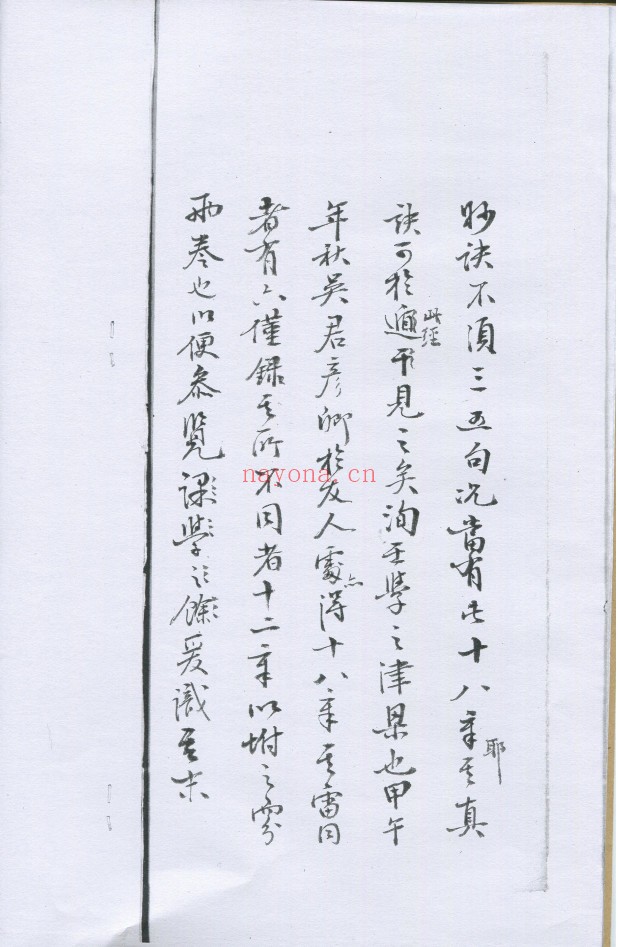 妙訣不須三五句況當有此十八章耶其真
訣可於此經見之矣洵學之津梁也甲午
年秋吳君彥卿於友人處亦得十八章其雷同
者有六僅錄其所不同者十二章以坿之分
兩卷也以便參覽課學之餘爰識其末
nayona.cn